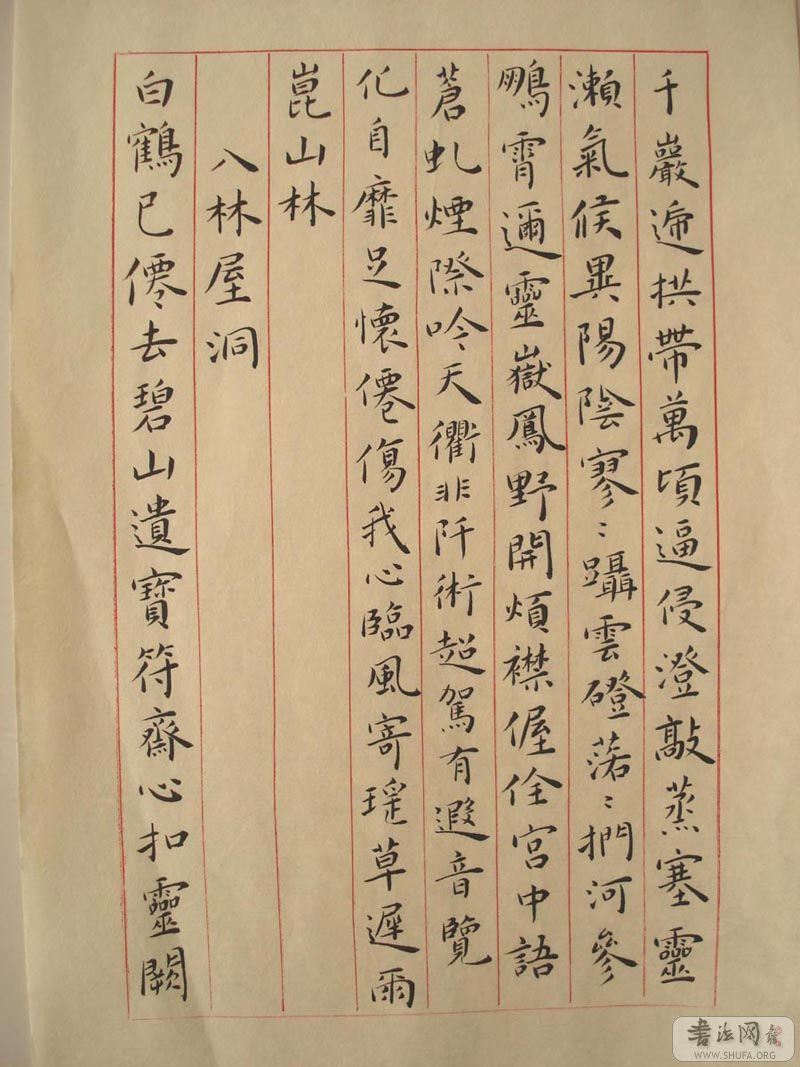 千巖遞拱帶萬頃逼侵澄敲蒸塞靈
瀨氣候異陽陰寥〻躡雲磴落〻捫河參
鵬霄邇靈嶽鳳野開煩襟偓佺宮中語
蒼虬煙際吟天衢非阡術超駕有遐音覽
化自靡足懷僊傷我心臨風寄瑤草遲爾
崑山林
八林屋洞
白鶴已僊去碧山遺寶符齋心扣靈闕
書法网
WWW.SHUFA.ORG